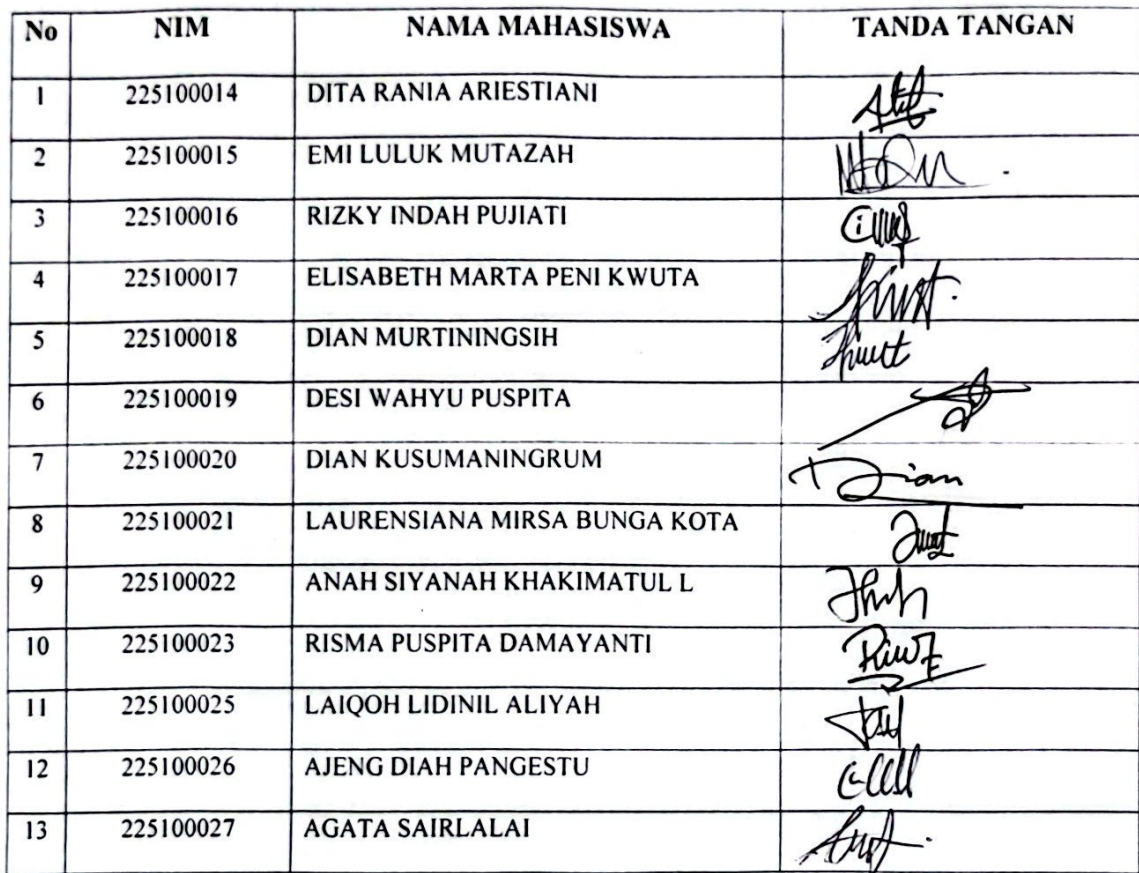 No NIM NAMA MAHASISWA TANDA TANGAN
1 225100014 DITA RANIA ARIESTIANI
2 225100015 EMI LULUK MUTAZAH
3 225100016 RIZKY INDAH PUJIATI
4 225100017 ELISABETH MARTA PENI KWUTA
5 225100018 DIAN MURTININGSIH
6 225100019 DESI WAHYU PUSPITA
7 225100020 DIAN KUSUMANINGRUM Dian
8 225100021 LAURENSIANA MIRSA BUNGA KOTA
9 225100022 ANAH SIYANAH KHAKIMATUL L
10 225100023 RISMA PUSPITA DAMAYANTI
11 225100025 LAIQOH LIDINIL ALIYAH
12 225100026 AJENG DIAH PANGESTU
13 225100027 AGATA SAIRLALAI